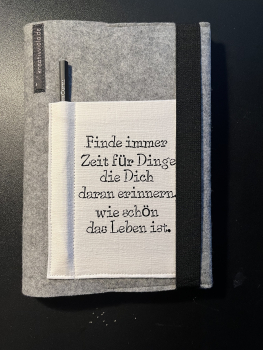 kreativmanufaktur.de
Finde immer
Zeit für Dinge
die Dich
daran erinnern,
wie schön
das Leben ist.